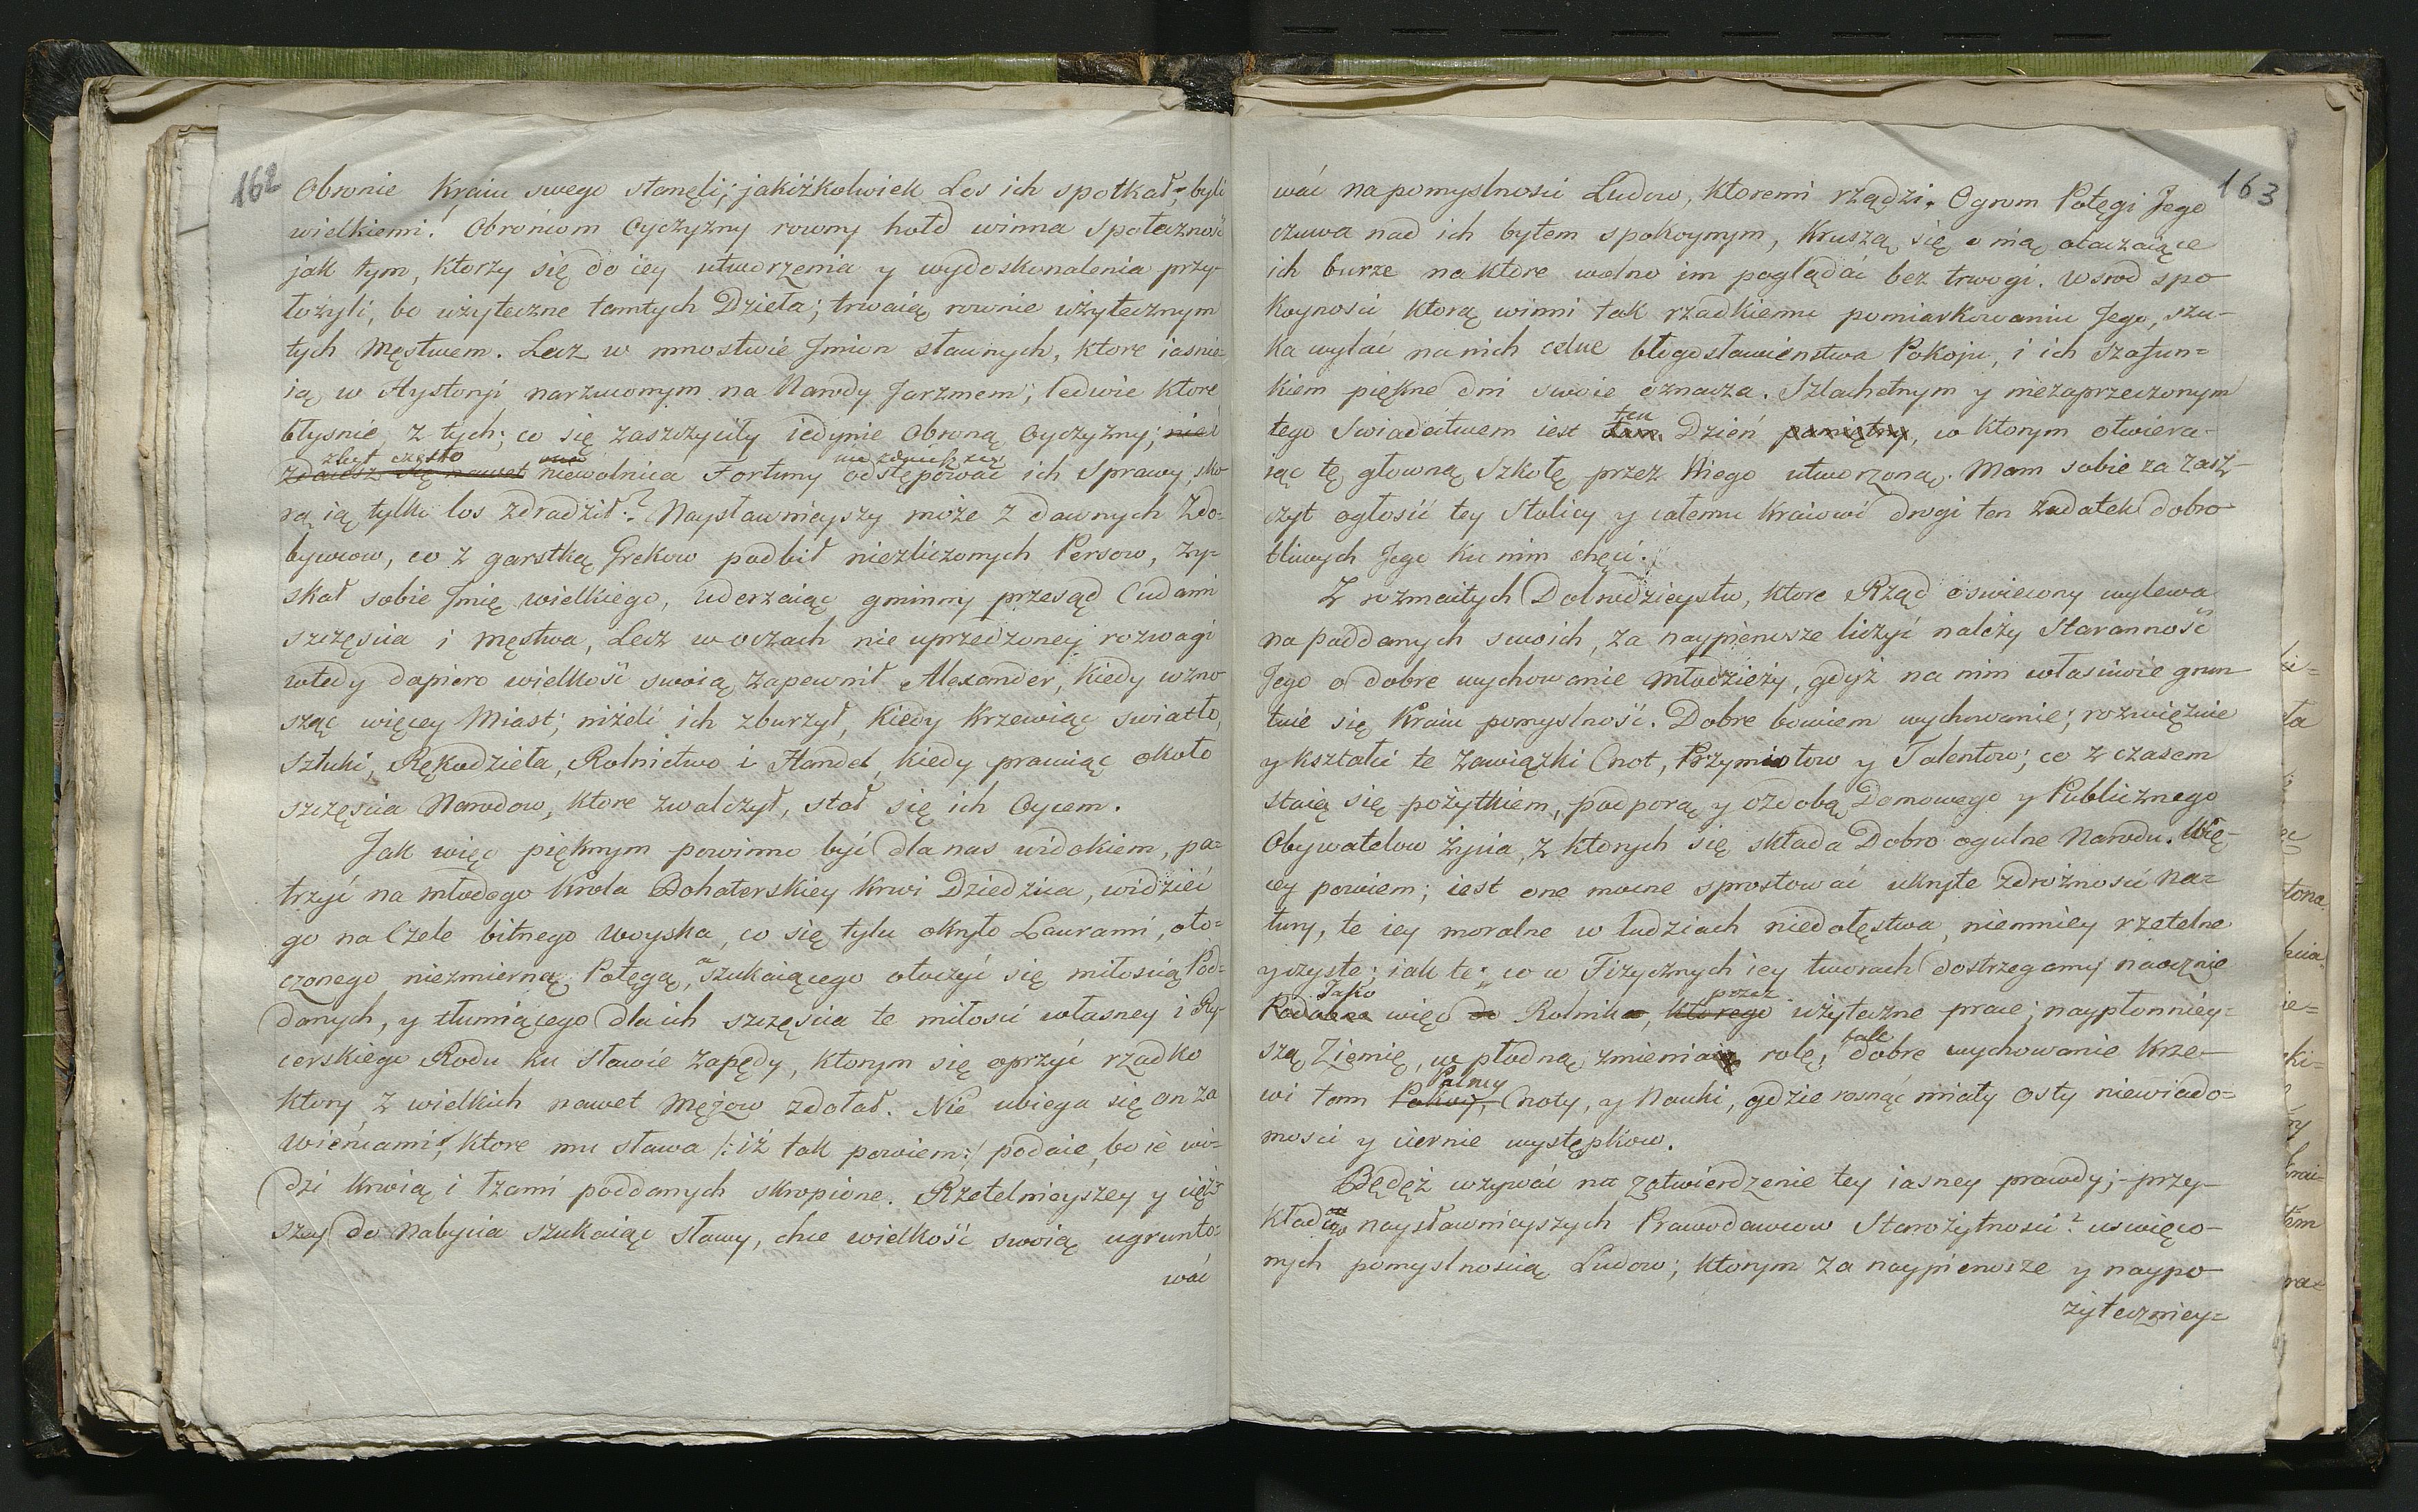 162
Obronie Kraiu swego stanęli; jakiżkolwiek Los ich spotkał, byli
wielkiemi. Obrońcom Oyczyzny rowny hołd winna Społeczność
jak tym, ktorzy się do iey utworzenia y wydoskonalenia przy-
łożyli, bo użyteczne tamtych Dzieła; trwaią rownie użytecznym
tych Męstwem. Lecz w mnostwie Jmion sławnych, ktore iasnie-
ią w Hystoryi narzuconym na Narody Jarzmem, ledwie ktore
błysnie, z tych; co się zaszczyciły iedynie Obroną Oyczyzny;
zbyt często
Zdaiesz się nawet niewolnica Fortuny odstępować ich Sprawy, sko-
rą ią tylko los zdradził? Naysławnieyszy może z dawnych Zdo-
bywcow, co z garstką Grekow podbił niezliczonych Persow, zy-
skał sobie Jmię wielkiego, Uderzaiąc gminny przesąd Cudami
szczęscia i męstwa, Lecz w oczach nie uprzedzoney rozwagi
wtedy dopiero wielkość swoią zapewnił Alexander, kiedy wzno-
sząc więcey Miast; niżeli ich zburzył, kiedy krzewiąc swiatło,
Sztuki, Rękodzieła, Rolnictwo i Handel, kiedy pracuiąc około
szczęscia Narodow, ktore zwalczył, stał się ich Oycem.
Jak więc pięknym powinno być dla nas widokiem, pa-
trzyć na młodego Krola Bohaterskiey krwi Dziedzica, widzieć
go na Czele bitnego Woyska, co się tylu okryło Laurami, oto-
czonego niezmierną Potęgą, a szukaiącego otoczyć się miłoscią Pod-
danych, y tłumiącego dla ich szczęscia te miłosci własney i Ry-
cerskiego Rodu ku Sławie zapędy, ktorym się oprzyć rzadko
ktory z wielkich nawet Mężow zdołał. Nie ubiega się on za
Wieńcami, ktore mu sława /: iż tak powiem :/ podaie, bo ie wi-
dzi krwią i łzami poddanych skropione. Rzetelnieyszey y cięż-
szey do Nabycia szukaiąc sławy, chce wielkość swoią ugrunto-
wać
163
wać na pomyslnosci Ludow, ktoremi rządzi. Ogrom Potęgi Jego
czuwa nad ich bytem spokoynym, kruszą się o nią otaczaiące
ich burze na ktore wolno im poglądać bez trwogi. Wsrod spo-
koynosci ktorą winni tak rzadkiemu pomiarkowaniu Jego, szu-
ka wylać na nich celne błogosławieństwa Pokoju, i ich szafun-
kiem piękne dni swoie oznacza. Szlachetnym y niezaprzeczonym
ten
tego Swiadectwem iest tam Dzień pamiętny, w ktorym otwiera-
iąc tę głowną Szkołę przez Niego utworzoną. Mam sobie za zasz-
czyt ogłosić tey Stolicy y całemu Kraiowi drogi ten zadatek dobro-
tliwych Jego ku nim chęci.
Z rozmaitych Dobrodzieystw, ktore Rząd oswiecony wylewa
na poddanych swoich, za naypierwsze liczyć należy Staranność
Jego o dobre wychowanie Młodzieży, gdyż na nim własciwie grun-
tuie się Kraiu pomyslność. Dobre bowiem wychowanie, rozwięzuie
y kształci te zawiązki Cnot, Przymiotow y Talentow; co z czasem
staią się pożytkiem, podporą y ozdobą Domowego y Publicznego
Obywatelow życia, z ktorych się składa Dobro ogulne Narodu. Wię-
cey powiem; iest one mocne sprostować ukryte zdrożnosci Na-
tury, te iey moralne w ludziach niedołęstwa, niemniey rzetelne
y czyste; iak te; co w Fizycznych iey tworach dostrzegamy naocznie
Jako przez
Podobne więc do Rolnika, ktorego użyteczne prace; naypłonniey-
szą Ziemię, w płodną zmieniaią rolę; dobre wychowanie krze-
Palmy
wi tam Cnoty, y Nauki, gdzie rosnąć miały Osty niewiado-
mosci y ciernie występkow.
Będęż wzywać na zatwierdzenie tey iasney prawdy; przy-
kładow naysławnieyszych Prawodawcow Starożytnosci? uswięco-
nych pomyslnoscią Ludow; ktorym za naypierwsze y naypo-
żyteczniey-